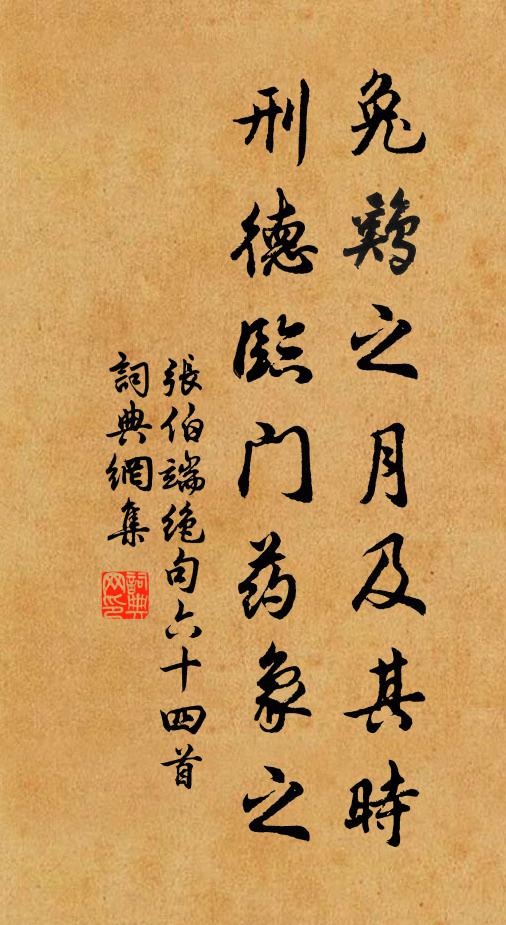 兔鷄之月及其時
刑德臨门药象之
張伯端绝句六十四首
詞典網集
詞典网印